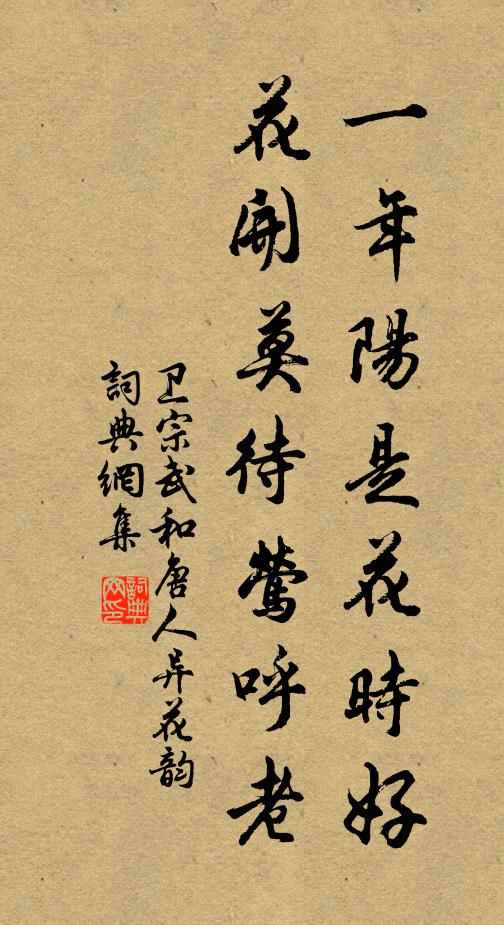 一年陽是花時好
花開莫待鶯呼老
卫宗武和唐人弄花韵
詞典網集
詞典網印